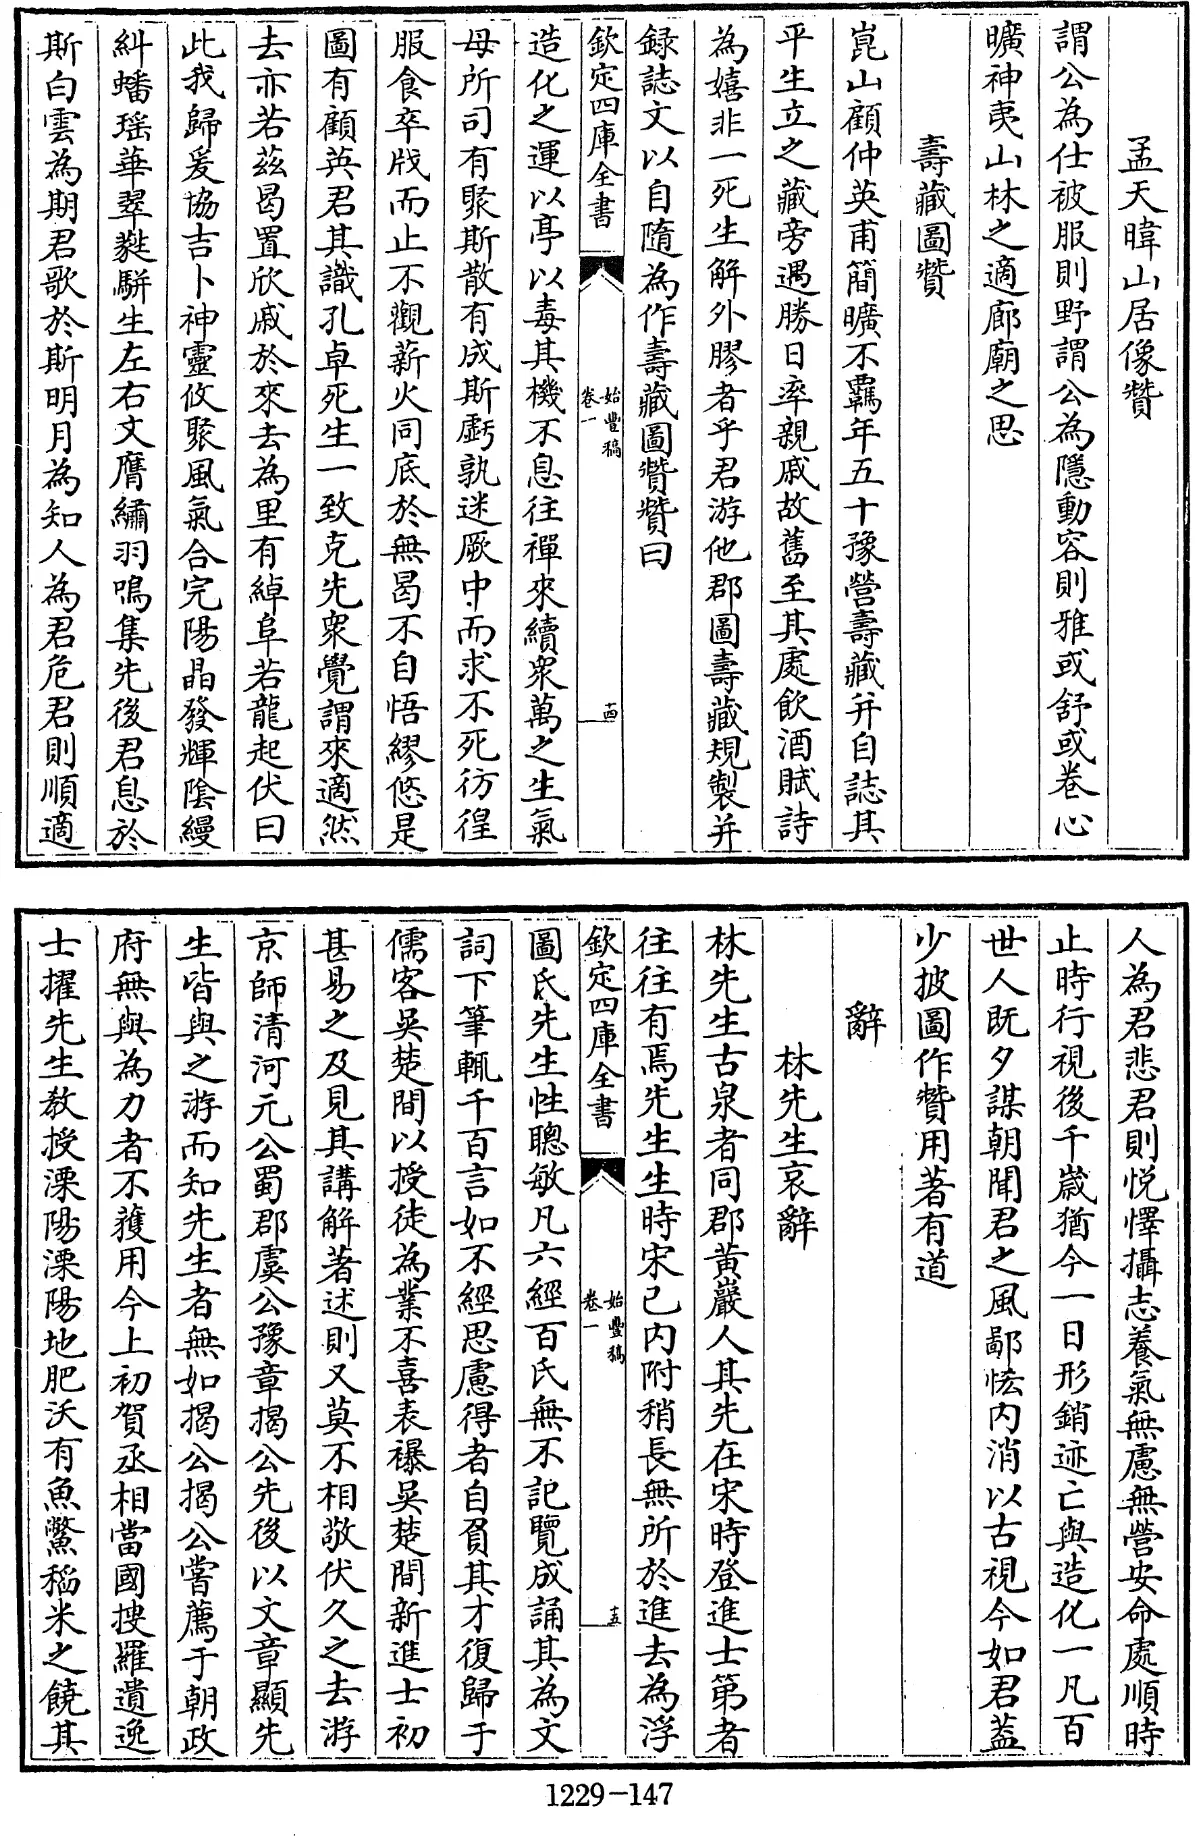 孟天暐山居像贊
謂公為仕被服則野謂公為隱動容則雅或舒或卷心
曠神夷山林之適廊廟之思
壽藏圖贊
崑山顧仲英甫簡曠不羈年五十豫營壽藏并自誌其
平生立之藏旁遇勝日率親戚故舊至其處飲酒賦詩
為嬉非一死生解外膠者乎君游他郡圖壽藏規製并
録誌文以自隨為作壽藏圖贊贊曰
欽定四庫全書
始豐稿
卷一
十四
造化之運以亭以毒其機不息往禪來續衆萬之生氣
母所司有聚斯散有成斯虧孰迷厥中而求不死彷徨
服食卒戕而止不觀薪火同底於無曷不自悟繆悠是
圖有顧英君其識孔卓死生一致克先衆覺謂來適然
去亦若茲曷置欣戚於來去為里有綽阜若龍起伏曰
此我歸爰協吉卜神靈攸聚風氣合完陽晶發輝陰縵
糾蟠瑶華翠蕤駢生左右文膺繡羽鳴集先後君息於
斯白雲為期君歌於斯明月為知人為君危君則順適
人為君悲君則悦懌攝志養氣無慮無營安命處順時
止時行視後千歲猶今一日形銷迹亡與造化一凡百
世人既夕謀朝聞君之風鄙恡内消以古視今如君蓋
少披圖作贊用著有道
辭
林先生哀辭
林先生古泉者同郡黄巖人其先在宋時登進士第者
往往有焉先生生時宋已内附稍長無所於進去為浮
欽定四庫全書
始豐稿
卷一
十五
圖氏先生性聰敏凡六經百氏無不記覽成誦其為文
詞下筆輒千百言如不經思慮得者自負其才復歸于
儒客吳楚間以授徒為業不喜表襮吳楚間新進士初
甚易之及見其講解著述則又莫不相敬伏久之去游
京師清河元公蜀郡虞公豫章揭公先後以文章顯先
生皆與之游而知先生者無如揭公揭公嘗薦于朝政
府無與為力者不獲用今上初賀丞相當國搜羅遺逸
士擢先生教授溧陽溧陽地肥沃有魚鱉稻米之饒其
1229-147